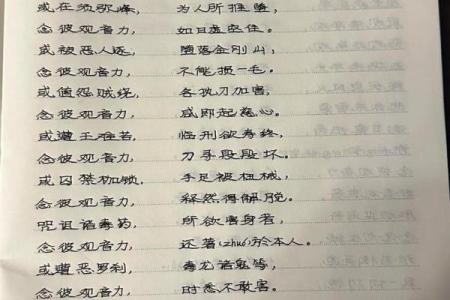 或在须弥峰， 为人所推堕，
念彼观音力， 如日虚空住。
或被恶人逐， 堕落金刚山，
念彼观音力， 不能损一毛。
或值怨贼绕， 各执刀加害，
念彼观音力， 咸即起慈心。
或遭王难苦， 临刑欲寿终，
念彼观音力， 刀寻段段坏。
或囚禁枷锁， 手足被杻械，
念彼观音力， 释然得解脱。
咒诅诸毒药， 所欲害身者，
念彼观音力， 还著(zhuó)於本人。
或遭恶罗刹， 毒龙诸鬼等，
念彼观音力， 时悉不敢害。